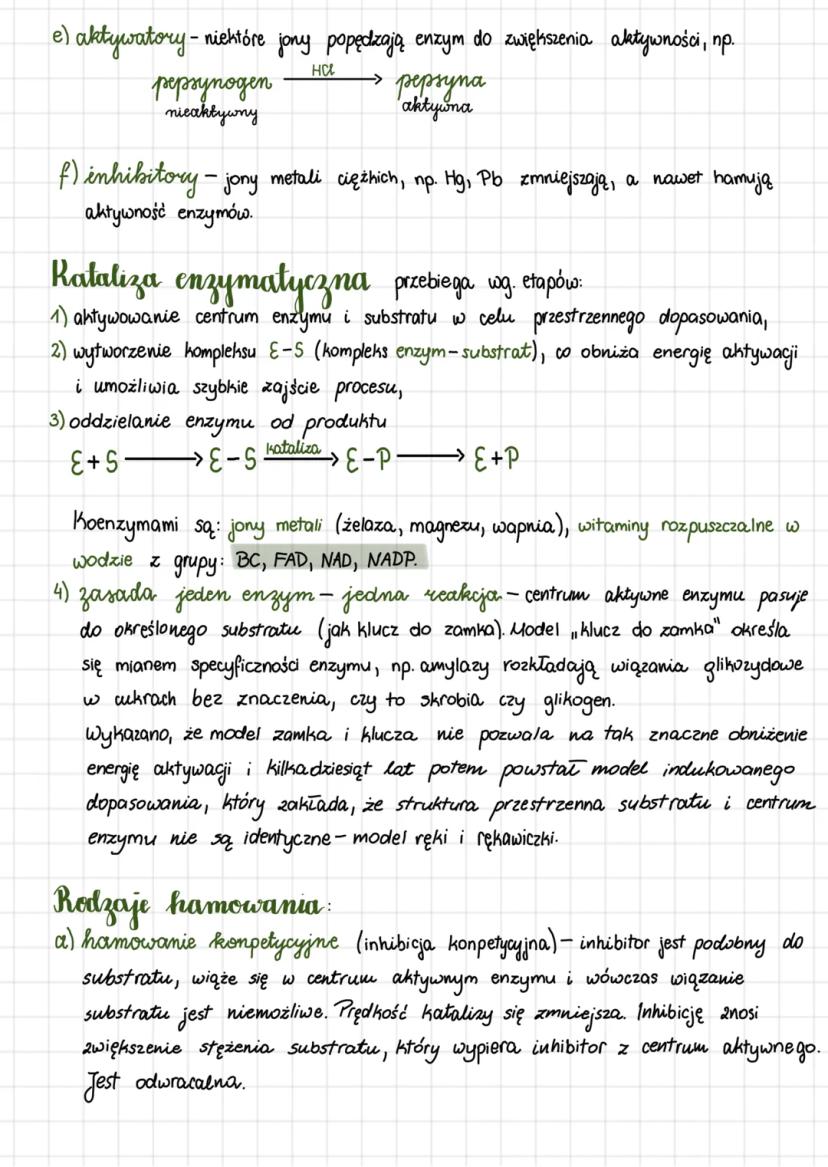 e) aktywatory - niektóre jony popędzają enzym do zwiększenia aktywności, np.
pepsynogen HCl → pepsyna
nieaktywny aktywna
f) inhibitory - jony metali ciężkich, np. Hg, Pb zmniejszają, a nawet hamują
aktywność enzymów.
Kataliza enzymatyczna przebiega wg. etapów:
1) aktywowanie centrum enzymu i substratu w celu przestrzennego dopasowania,
2) wytworzenie kompleksu E-S (kompleks enzym-substrat), co obniża energię aktywacji
i umożliwia szybkie zajście procesu,
3) oddzielanie enzymu od produktu
E+S → E-S kataliza → E-P → E+P
Koenzymami są: jony metali (żelaza, magnezu, wapnia), witaminy rozpuszczalne w
wodzie z grupy: BC, FAD, NAD, NADP.
4) zasada jeden enzym - jedna reakcja - centrum aktywne enzymu pasuje
do określonego substratu (jak klucz do zamka). Model „klucz do zamka" określa
się mianem specyficzności enzymu, np. amylazy rozkładają wiązania glikozydowe
w cukrach bez znaczenia, czy to skrobia czy glikogen.
Wykazano, że model zamka i klucza nie pozwala na tak znaczne obniżenie
energię aktywacji i kilkadziesiąt lat potem powstał model indukowanego
dopasowania, który zakłada, że struktura przestrzenna substratu i centrum
enzymu nie są identyczne - model ręki i rękawiczki.
Rodzaje hamowania:
a) hamowanie konpetycyjne (inhibicja konpetycyjna) - inhibitor jest podobny do
substratu, wiąże się w centrum aktywnym enzymu i wówczas wiązanie
substratu jest niemożliwe. Prędkość katalizy się zmniejsza. Inhibicję znosi
zwiększenie stężenia substratu, który wypiera inhibitor z centrum aktywnego.
Jest odwracalna.